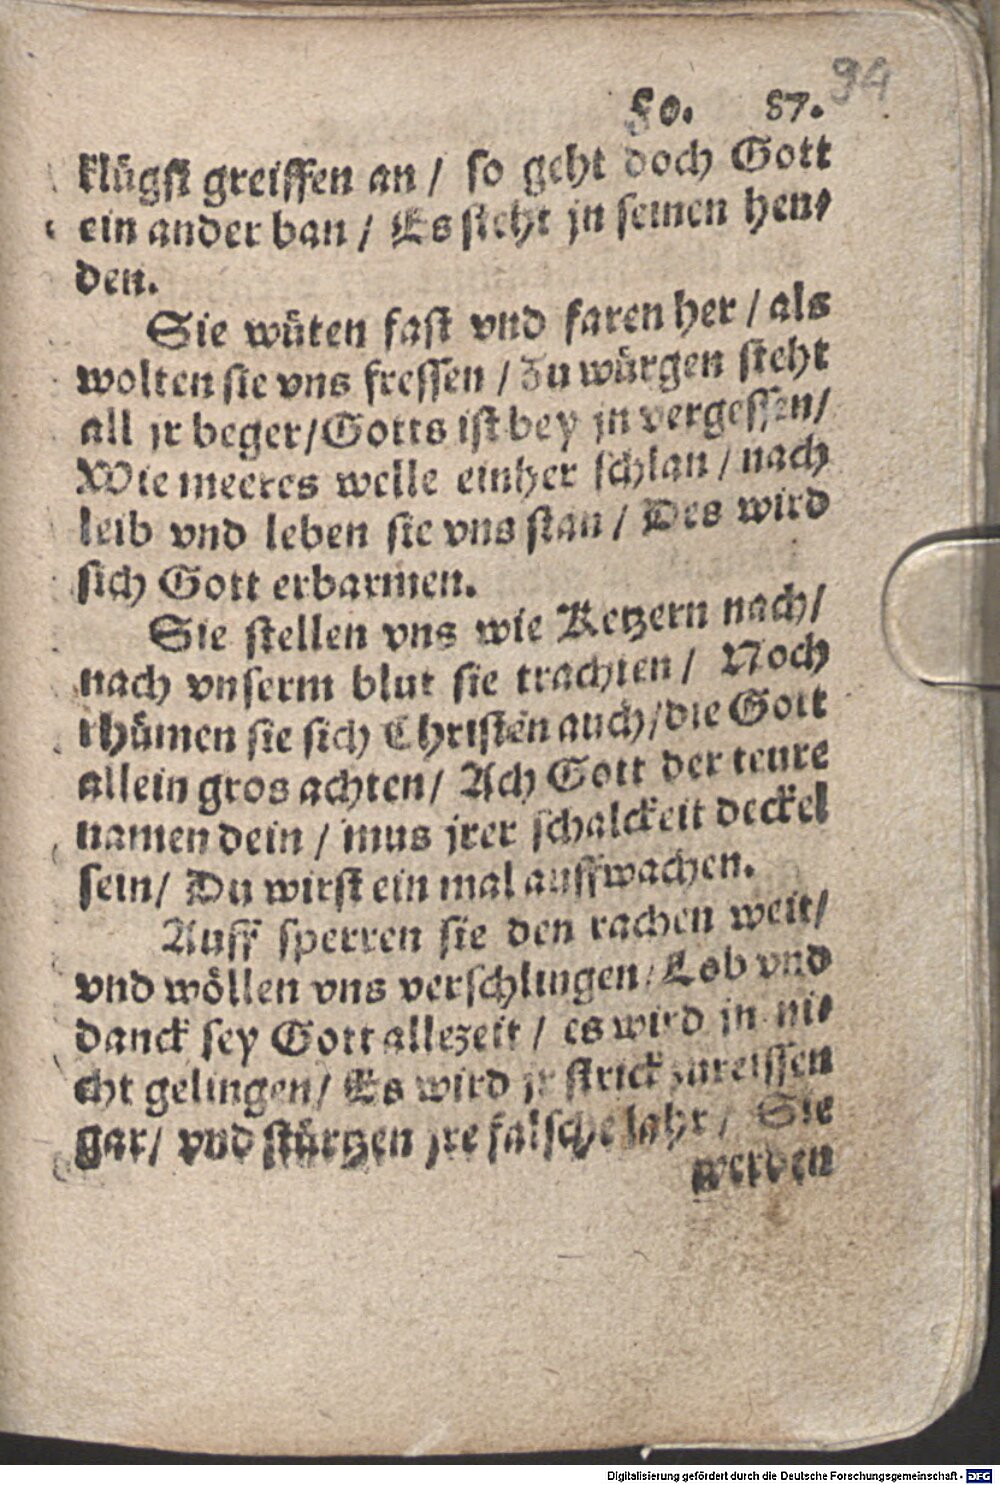 94
Fo. 87.
klůgst greiffen an / so geht doch Gott
ein ander ban / Es steht jn seinen hen⸗
den.
Sie wůten fast vnd faren her / als
wolten sie vns fressen / Zu würgen steht
all jr beger / Gotts ist bey jn vergessen /
Wie meeres welle einher schlan / nach
leib vnd leben sie vns stan / Des wird
sich Gott erbarmen.
Sie stellen vns wie Ketzern nach /
nach vnserm blut sie trachten / Noch
rhůmen sie sich Christen auch / die Gott
allein gros achten / Ach Gott der teure
namen dein / mus jrer schalckeit deckel
sein / Du wirst ein mal auffwachen.
Auff sperren sie den rachen weit /
vnd wöllen vns verschlingen / Lob vnd
danck sey Gott allezeit / es wird jn ni⸗
cht gelingen / Es wird jr strick zureissen
gar / vnd stürtzen jre falsche lahr / Sie
werden
Digitalisierung gefördert durch die Deutsche Forschungsgemeinschaft - DFG